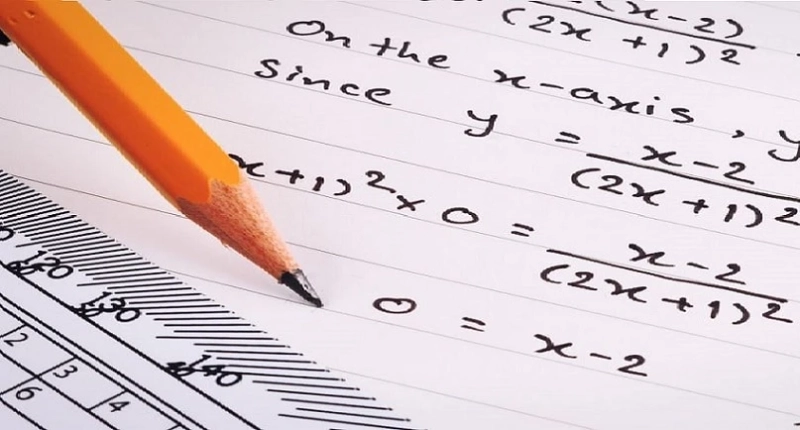 (x-2)
(2x +1)²
On the x-axis, y
Since y = x-2
(2x +1)²
x+1)² x 0 = x-2
(2x+1)²
0 = x-2
120 130 140
2 3 4
6